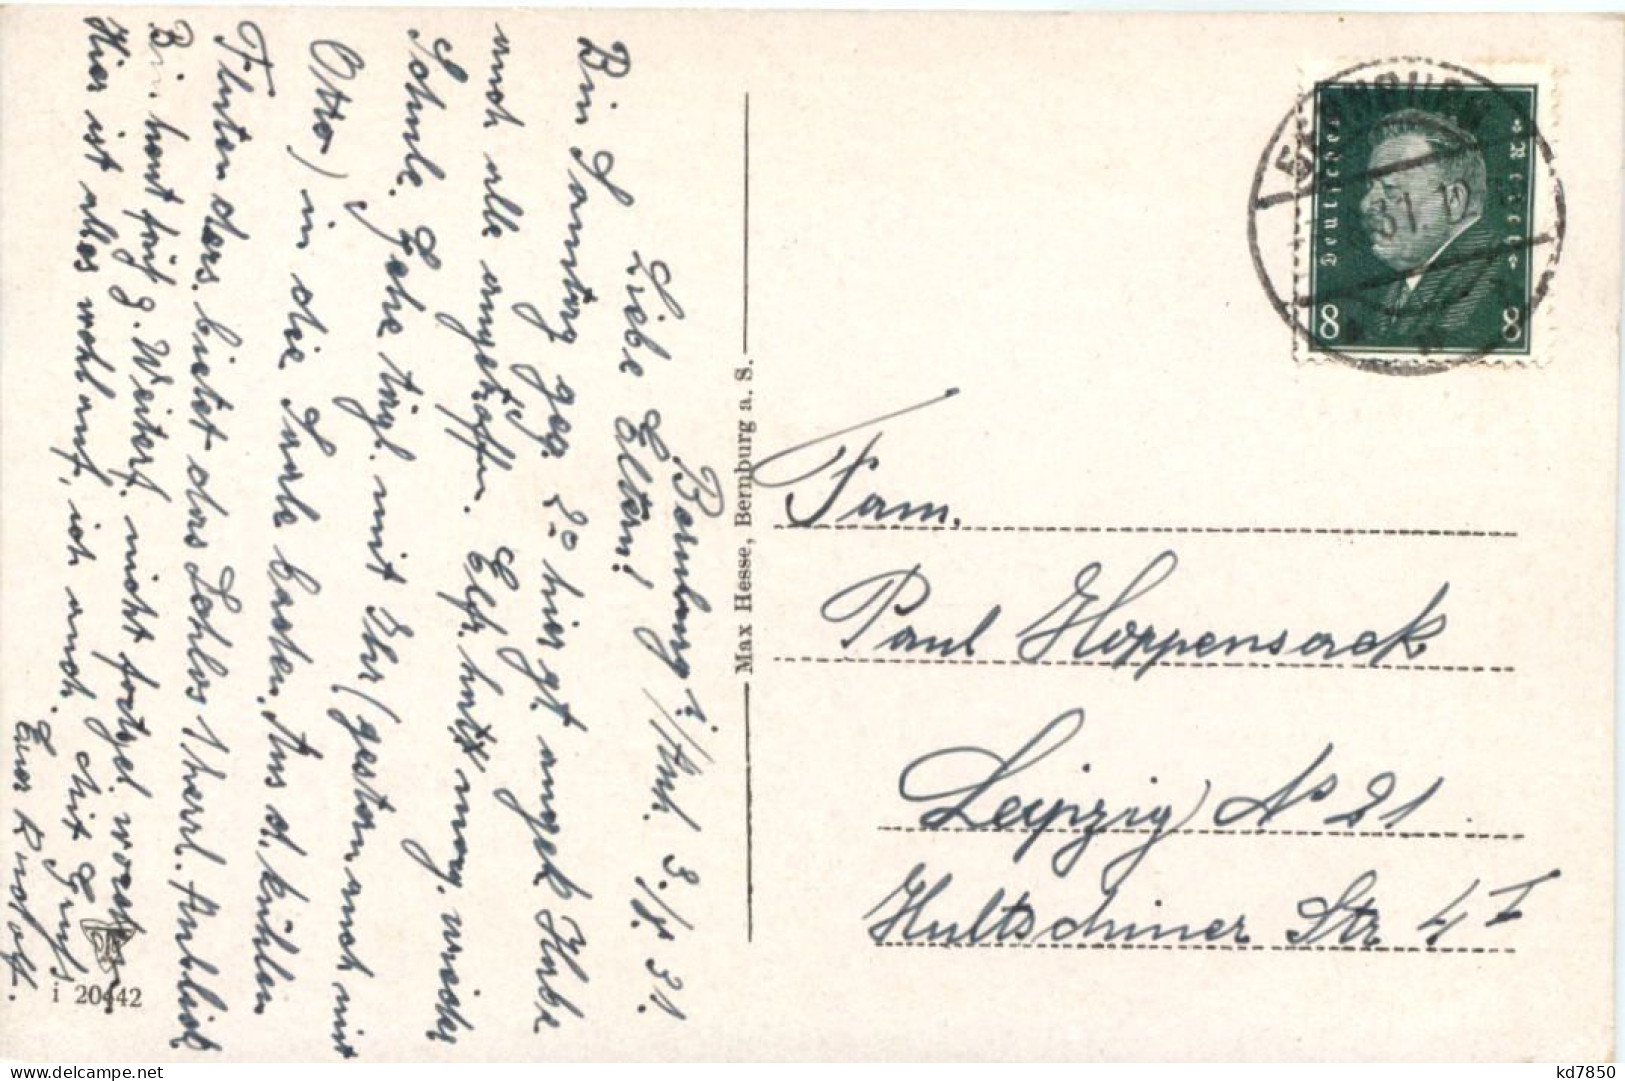 Bernburg i/Anh. 3./8. 31.
Liebe Eltern!
Bin Samstag geg. 2° hier gt. angek. Habe
auch alle angetroffen. Elfr. hatte morg. wieder
Schule. Gehe tägl. mit Ihr (gestern auch mit
Otto) in die Saale baden. Aus d. kühlen
Fluten ders. bietet das Schloss 1 herrl. Anblick
Bin. hont g. Weiterf. nicht fortgel. worden.
Hier ist alles wohlauf, ich auch. Mit Gruß
Euer Rudolf.
i 20442
Max Hesse, Bernburg a. S.
BERNBURG
31. 12
Deutsches Reich
8 8
Fam.
Paul Hoppensack
Leipzig N 21
Hultschiner Str 4 I
kd7850